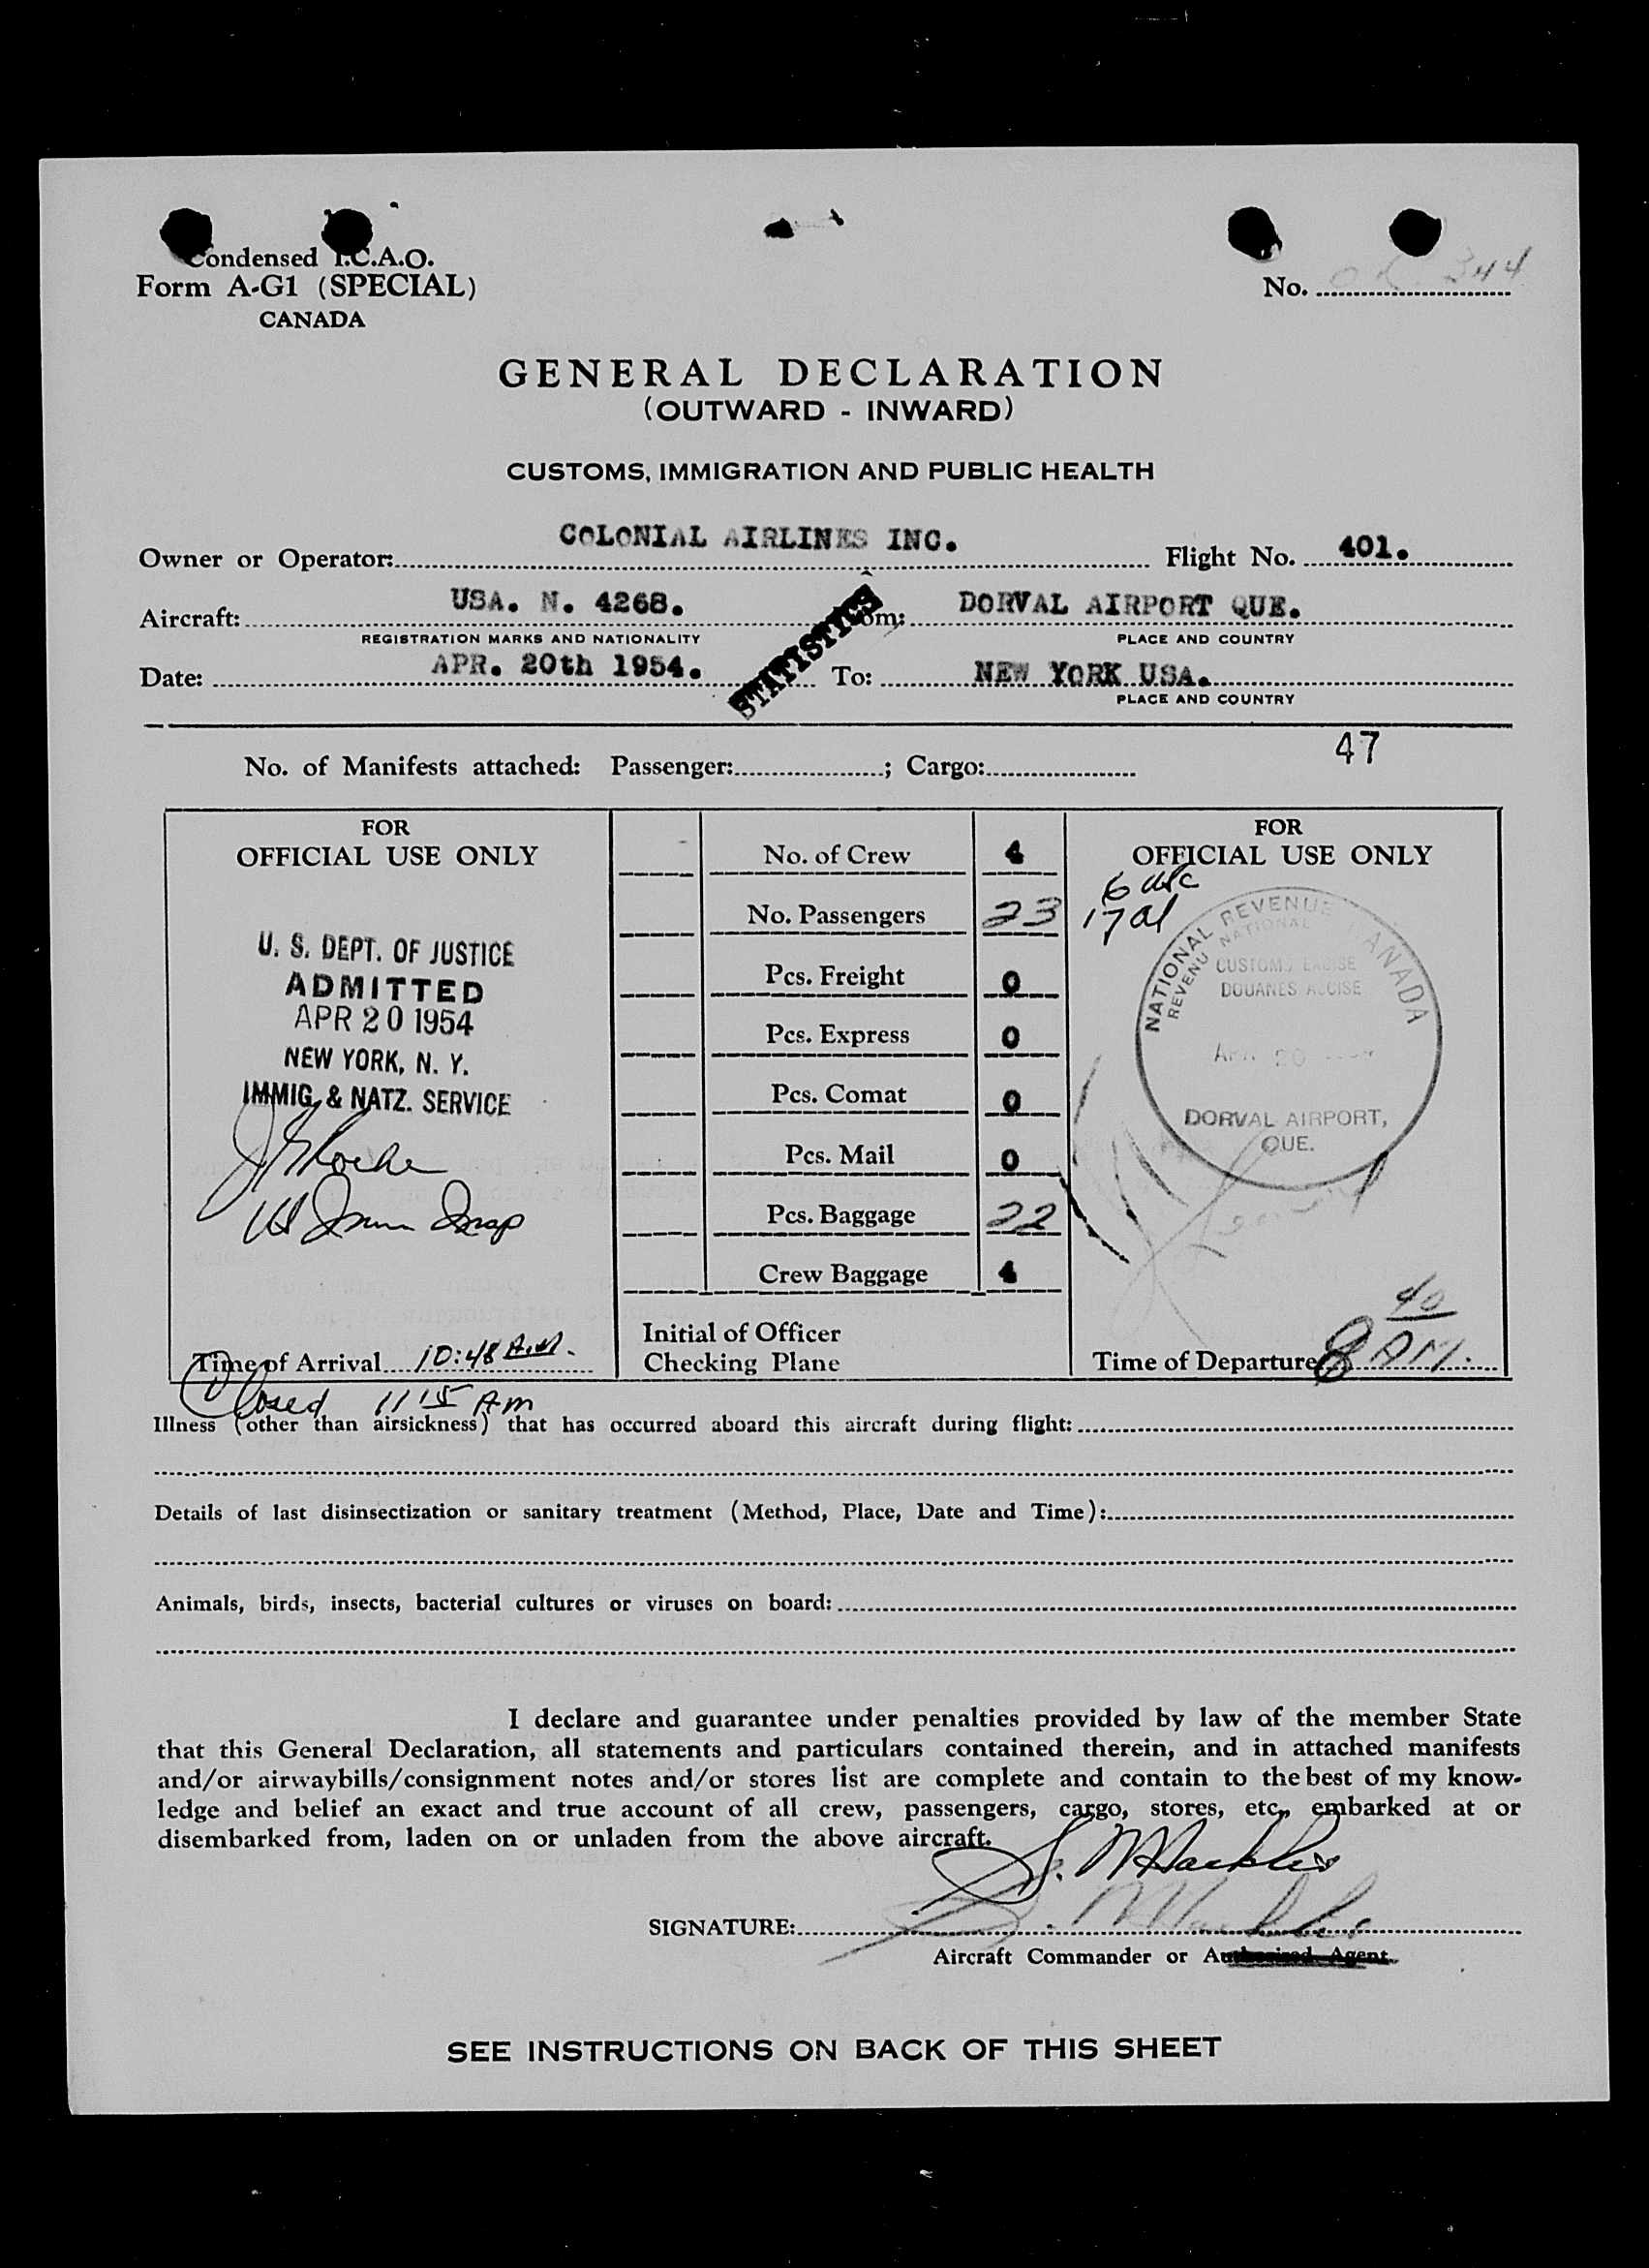 Condensed I.C.A.O.
Form A-G1 (SPECIAL)
CANADA
No. 344
GENERAL DECLARATION
(OUTWARD - INWARD)
CUSTOMS, IMMIGRATION AND PUBLIC HEALTH
Owner or Operator: COLONIAL AIRLINES INC. Flight No. 401.
Aircraft: USA. N. 4268. From: DORVAL AIRPORT QUE.
REGISTRATION MARKS AND NATIONALITY PLACE AND COUNTRY
STATISTICS
Date: APR. 20th 1954. To: NEW YORK USA.
PLACE AND COUNTRY
47
No. of Manifests attached: Passenger: ; Cargo:
FOR
OFFICIAL USE ONLY
U. S. DEPT. OF JUSTICE
ADMITTED
APR 20 1954
NEW YORK, N. Y.
IMMIG. & NATZ. SERVICE
Time of Arrival 10:48 A.M.
No. of Crew 4
No. Passengers 23
Pcs. Freight 0
Pcs. Express 0
Pcs. Comat 0
Pcs. Mail 0
Pcs. Baggage 22
Crew Baggage 4
Initial of Officer
Checking Plane
FOR
OFFICIAL USE ONLY
6 usc
17 al
NATIONAL REVENUE CANADA
REVENU NATIONAL
CUSTOMS EXCISE
DOUANES ACCISE
DORVAL AIRPORT,
QUE.
Time of Departure 8 40 AM.
Closed 11 15 Am
Illness (other than airsickness) that has occurred aboard this aircraft during flight:
Details of last disinsectization or sanitary treatment (Method, Place, Date and Time):
Animals, birds, insects, bacterial cultures or viruses on board:
I declare and guarantee under penalties provided by law of the member State
that this General Declaration, all statements and particulars contained therein, and in attached manifests
and/or airwaybills/consignment notes and/or stores list are complete and contain to the best of my know-
ledge and belief an exact and true account of all crew, passengers, cargo, stores, etc., embarked at or
disembarked from, laden on or unladen from the above aircraft.
SIGNATURE:
Aircraft Commander or Authorized Agent.
SEE INSTRUCTIONS ON BACK OF THIS SHEET